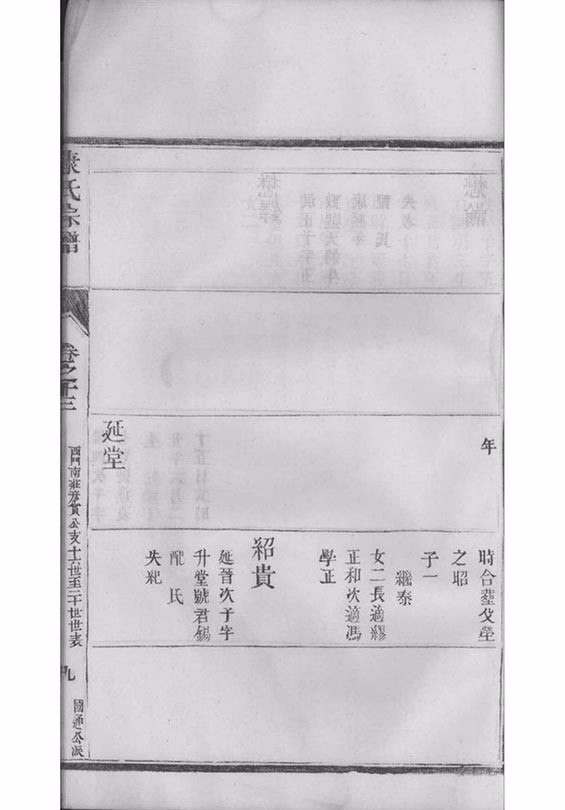 年
延堂
時合塟父塋
之昭
子一
繼泰
女二長適繆
正和次適馮
學正
紹貴
延晉次子字
升堂號君錫
配 氏
失紀
康氏宗譜
卷之十三
西門南莊彥貴公支十六世至二十世世表
九
國通公派